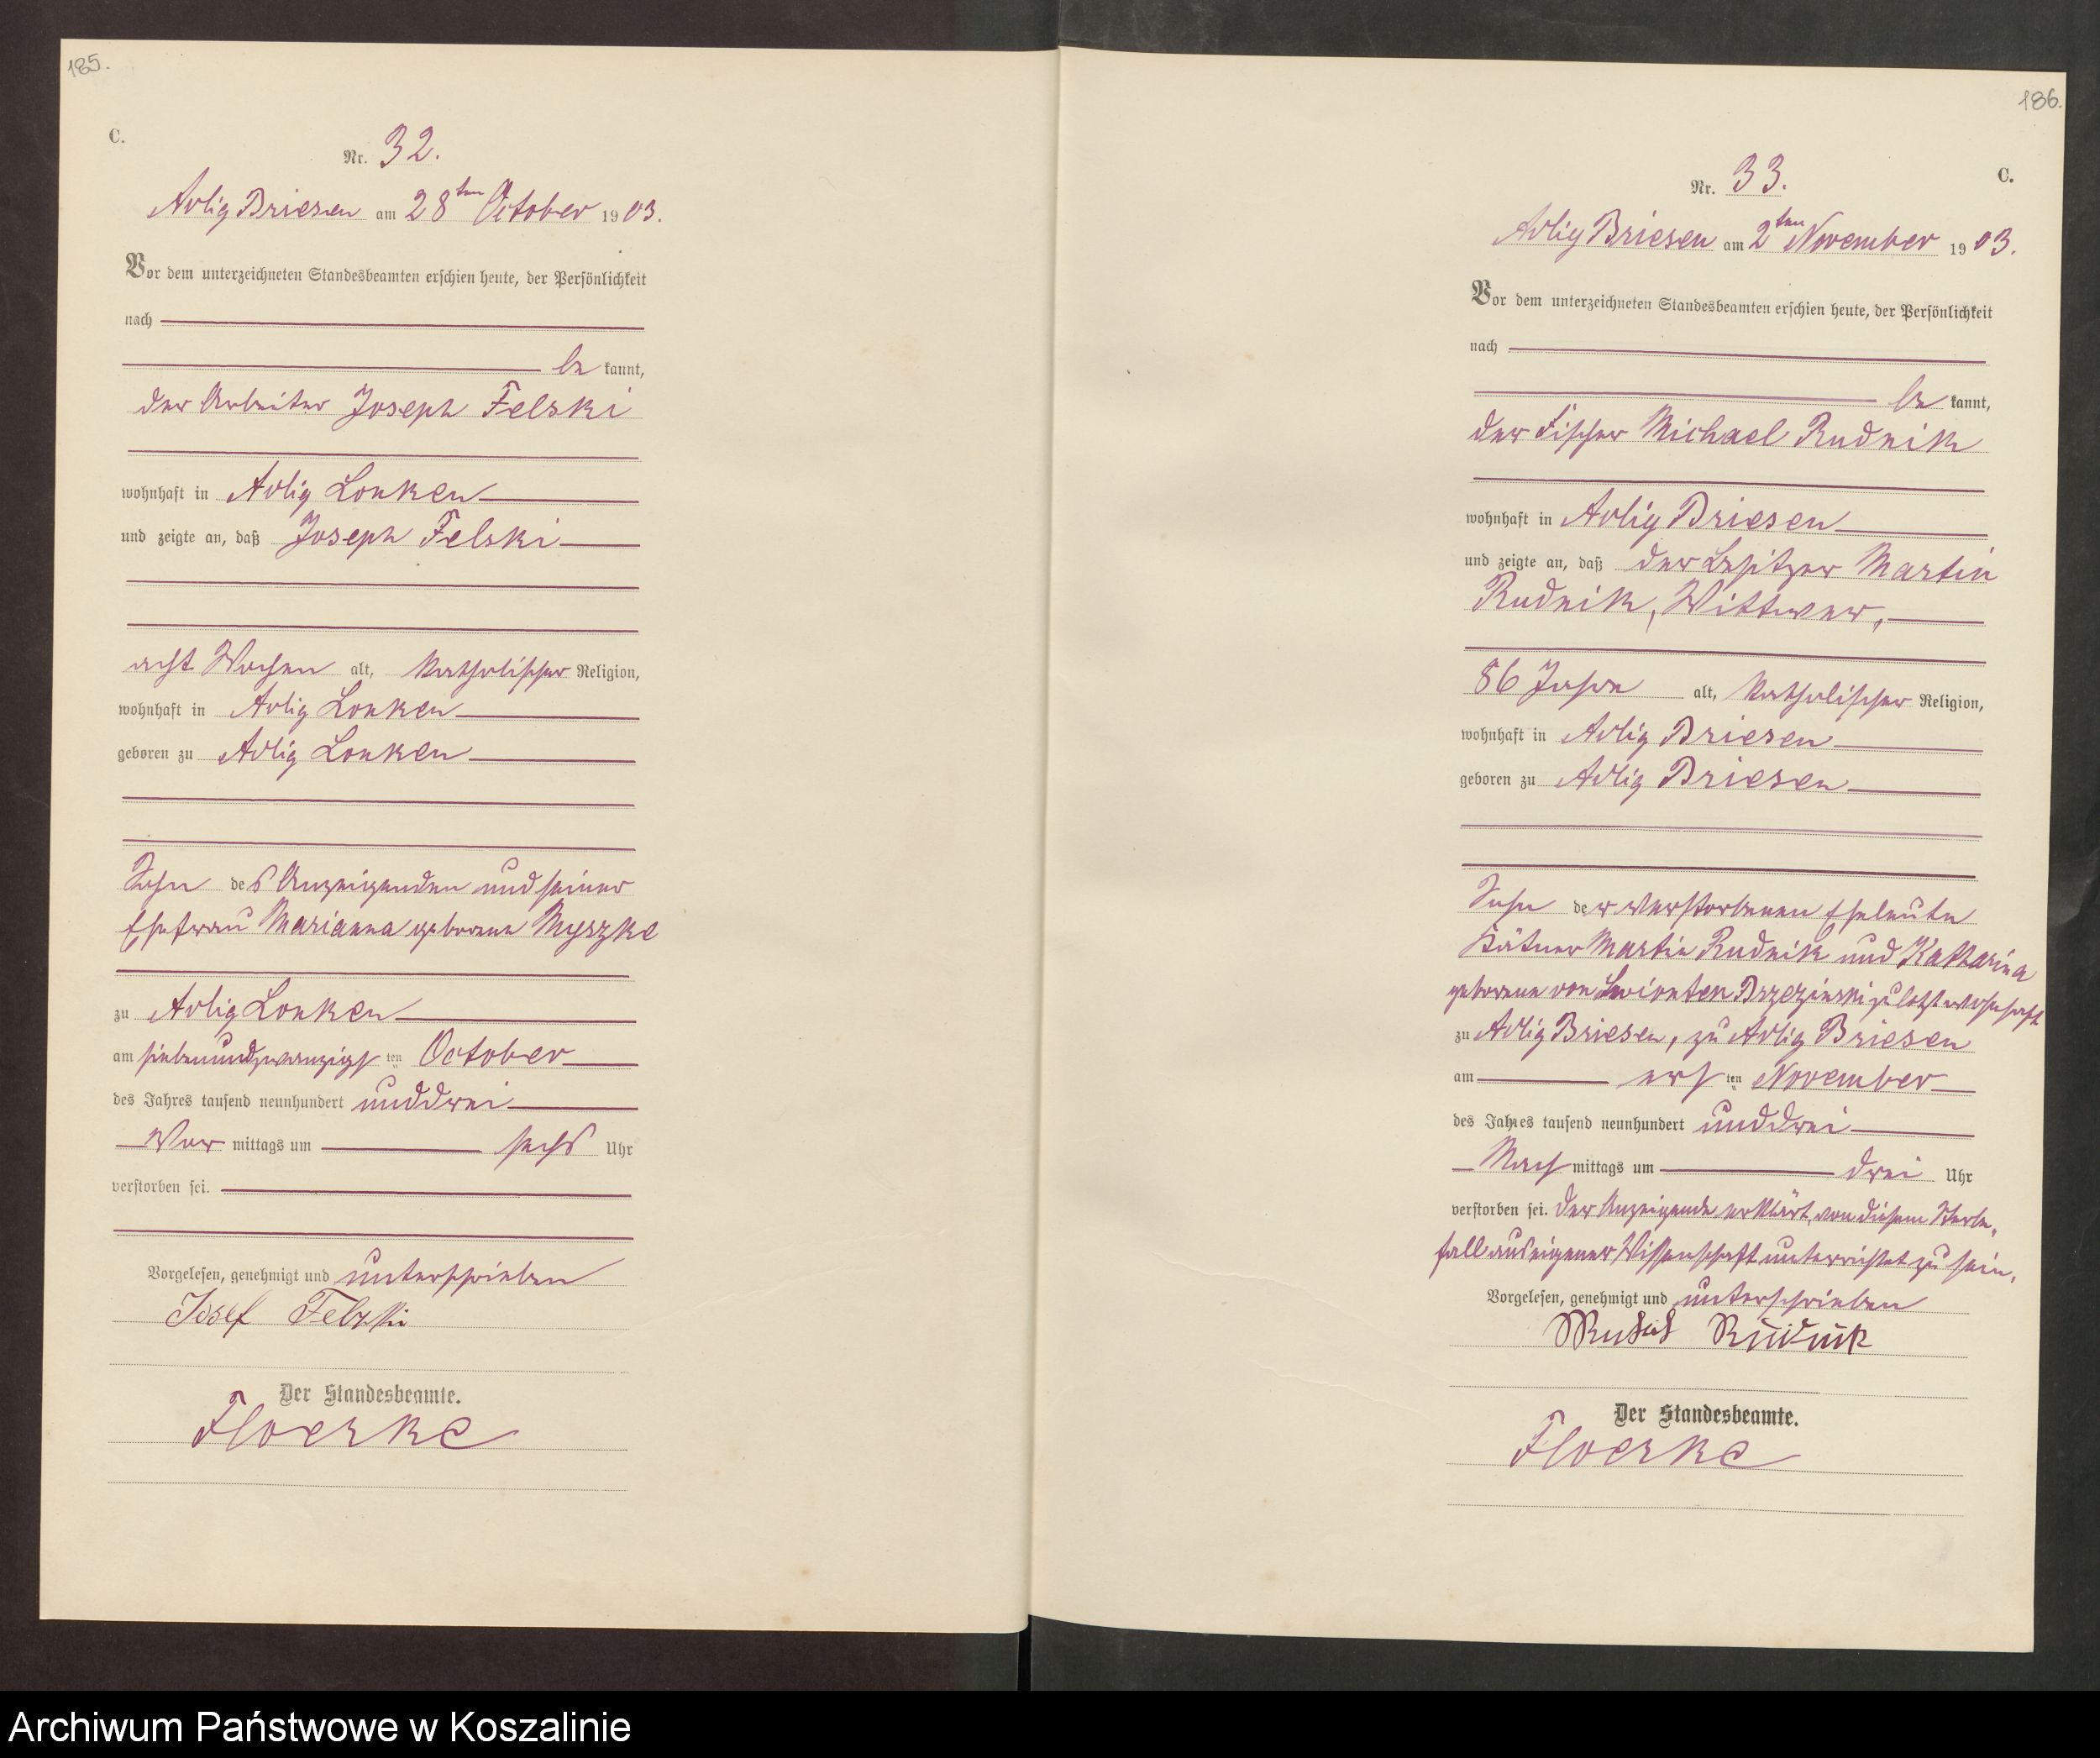 185.
C.
Nr. 32.
Adlig Briesen am 28ten October 1903.
Vor dem unterzeichneten Standesbeamten erschien heute, der Persönlichkeit
nach
be kannt,
der Arbeiter Joseph Felski
wohnhaft in Adlig Lonken
und zeigte an, daß Joseph Felski
acht Wochen alt, katholischer Religion,
wohnhaft in Adlig Lonken
geboren zu Adlig Lonken
Sohn des Anzeigenden und seiner
Ehefrau Marianna geborene Myszke
zu Adlig Lonken
am siebenundzwanzigsten October
des Jahres tausend neunhundert und drei
Vor mittags um sechs Uhr
verstorben sei.
Vorgelesen, genehmigt und unterschrieben
Josef Felski
Der Standesbeamte.
Floerke
186.
C.
Nr. 33.
Adlig Briesen am 2ten November 1903.
Vor dem unterzeichneten Standesbeamten erschien heute, der Persönlichkeit
nach
be kannt,
der Fischer Michael Rudnik
wohnhaft in Adlig Briesen
und zeigte an, daß der Besitzer Martin
Rudnik, Wittwer,
86 Jahre alt, katholischer Religion,
wohnhaft in Adlig Briesen
geboren zu Adlig Briesen
Sohn der verstorbenen Eheleute
Kätner Martin Rudnik und Katharina
geborene von Brzezinski zuletzt wohnhaft
zu Adlig Briesen, zu Adlig Briesen
am ersten November
des Jahres tausend neunhundert und drei
Nach mittags um drei Uhr
verstorben sei. Der Anzeigende erklärt, von diesem Sterbe-
fall aus eigener Wissenschaft unterrichtet zu sein.
Vorgelesen, genehmigt und unterschrieben
Rudnik
Der Standesbeamte.
Floerke
Archiwum Państwowe w Koszalinie